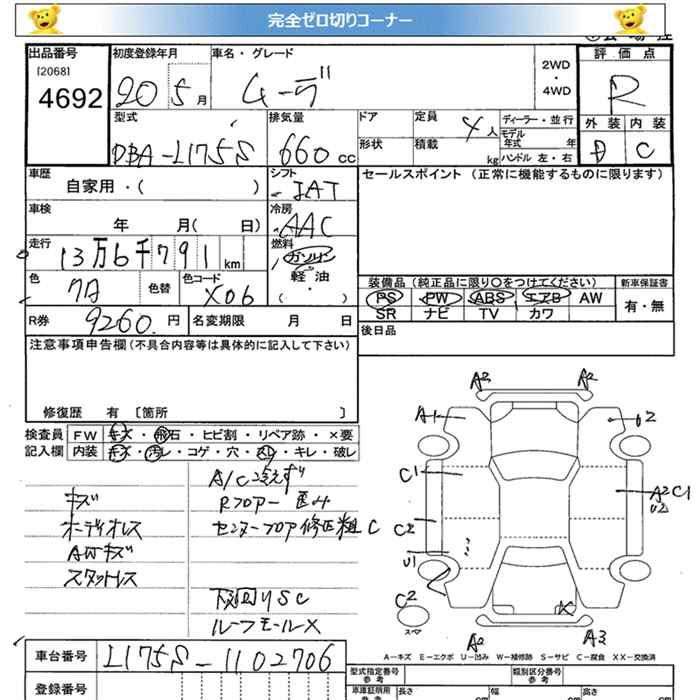 完全ゼロ切りコーナー
出品番号 初度登録年月 車名・グレード 2WD ・ 4WD 評価点
[2068]
4692 20 5月 ムーヴ R
型式 排気量 ドア 定員 4人 ディーラー・並行 外装 内装
DBA-L175S 660cc 形状 積載 kg モデル年式 年 D C
ハンドル 左・右
車歴 シフト セールスポイント(正常に機能するものに限ります)
自家用・( ) IAT
車検 冷房
年 月( 日) AAC
走行 燃料
13万6千791km ガソリン
軽油
色 色替 色コード ( ・ ) 装備品(純正品に限り○をつけてください) 新車保証書
7A X06 PS PW ABS エアB AW 有・無
SR ナビ TV カワ
R券 9260.円 名変期限 月 日 後日品
注意事項申告欄(不具合内容等は具体的に記入して下さい)
修復歴 有 [箇所 ]
検査員 FW キズ・飛石・ヒビ割・リペア跡・×要
記入欄 内装 キズ・汚レ・コゲ・穴・スレ・キレ・破レ
A/C冷えず
キズ Rフロアー凹み
オーディオレス センターフロア修正粗 C
AWキズ
スタットレス
下回りSC
ルーフモールX
A2 A2
A1 U2
C1 A2 C1
U2
C2
U1
C2
スペア
A2 A3
A-キズ E-エクボ U-凹み W-補修跡 S-サビ C-腐食 XX-交換済
車台番号 L175S-1102706
型式指定番号 参考 類別区分番号 参考
登録番号 車庫証明用 参考 長さ cm 幅 cm 高さ cm